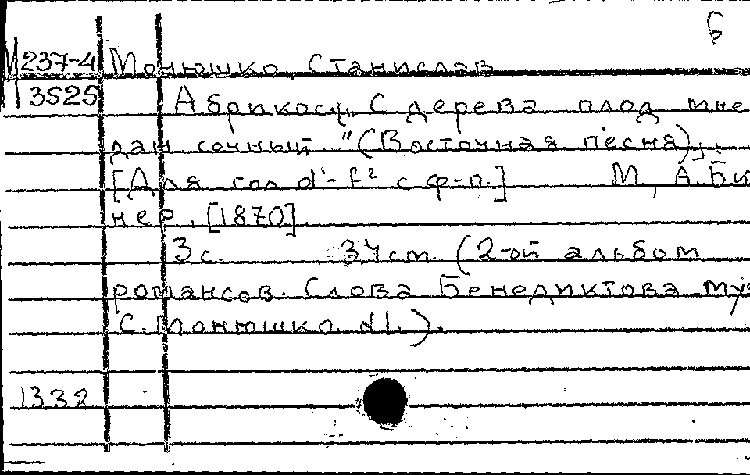 Б
М 237-4 Монюшко, Станислав
3525 Абрикосы. С дерева плод мне
дан сочный "(Восточная песня).
[Для гол d'-f² с ф-п.] М, А.Би
нер, [1870].
3 с. 34 cm (2-ой альбом
романсов. Слова Бенедиктова муз
С. Монюшко. d1.).
1332